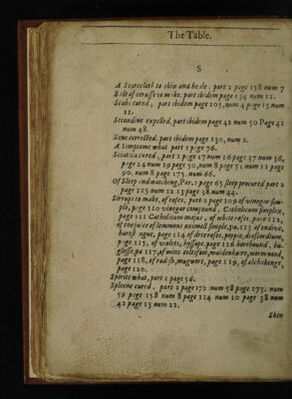 The Table.
S
A Seareclath to skin and heale. part 2 page 158 num 7
Salt of cerusse to make. part ibidem page 154 num 12.
Scabs cured, part ibidem page 105, num 4 page 15 num
22.
Secundine expelled. part ibidem page 42 num 50 Page 41
num 48.
Sene corrected. part ibidem page 130, num 2.
A Simptome what part 1 page 76.
Sciatica cured, part 2 page 27 num 16 page 37 num 36,
page 24 num 19 page 50, num 8 page 51 num 11 page
90, num 8 page 175 num 66.
Of Sleep and watching, Par. 1 page 65 sleep procured part 2
page 115 num 22 23 page 38 num 44.
Sirrups to make, of roses, part 2 page 109 of vinegar sim-
ple, page 110 vinegar compound, Catholicum simplex,
page 111 Catholicum majus, of white roses, page 112,
of the juice of lemmons oximell simple, pa. 113 of endive,
page 114 of drie roses, poppie, de scordium,
page 115, of violets, hyssope, page 116 horehound, bu-
glosse, pa 117, of mint maidenhaire, wormwood,
page 118, of radish, mugwort, page 119, of alchekenge,
page 120.
Spirits what, part 1 page 56.
Spleene cured, part 2 page 172 num 58 page 173. num
59 page 158 num 8 page 114 num 10 page 38 num
42 page 15 num 22.
Skin